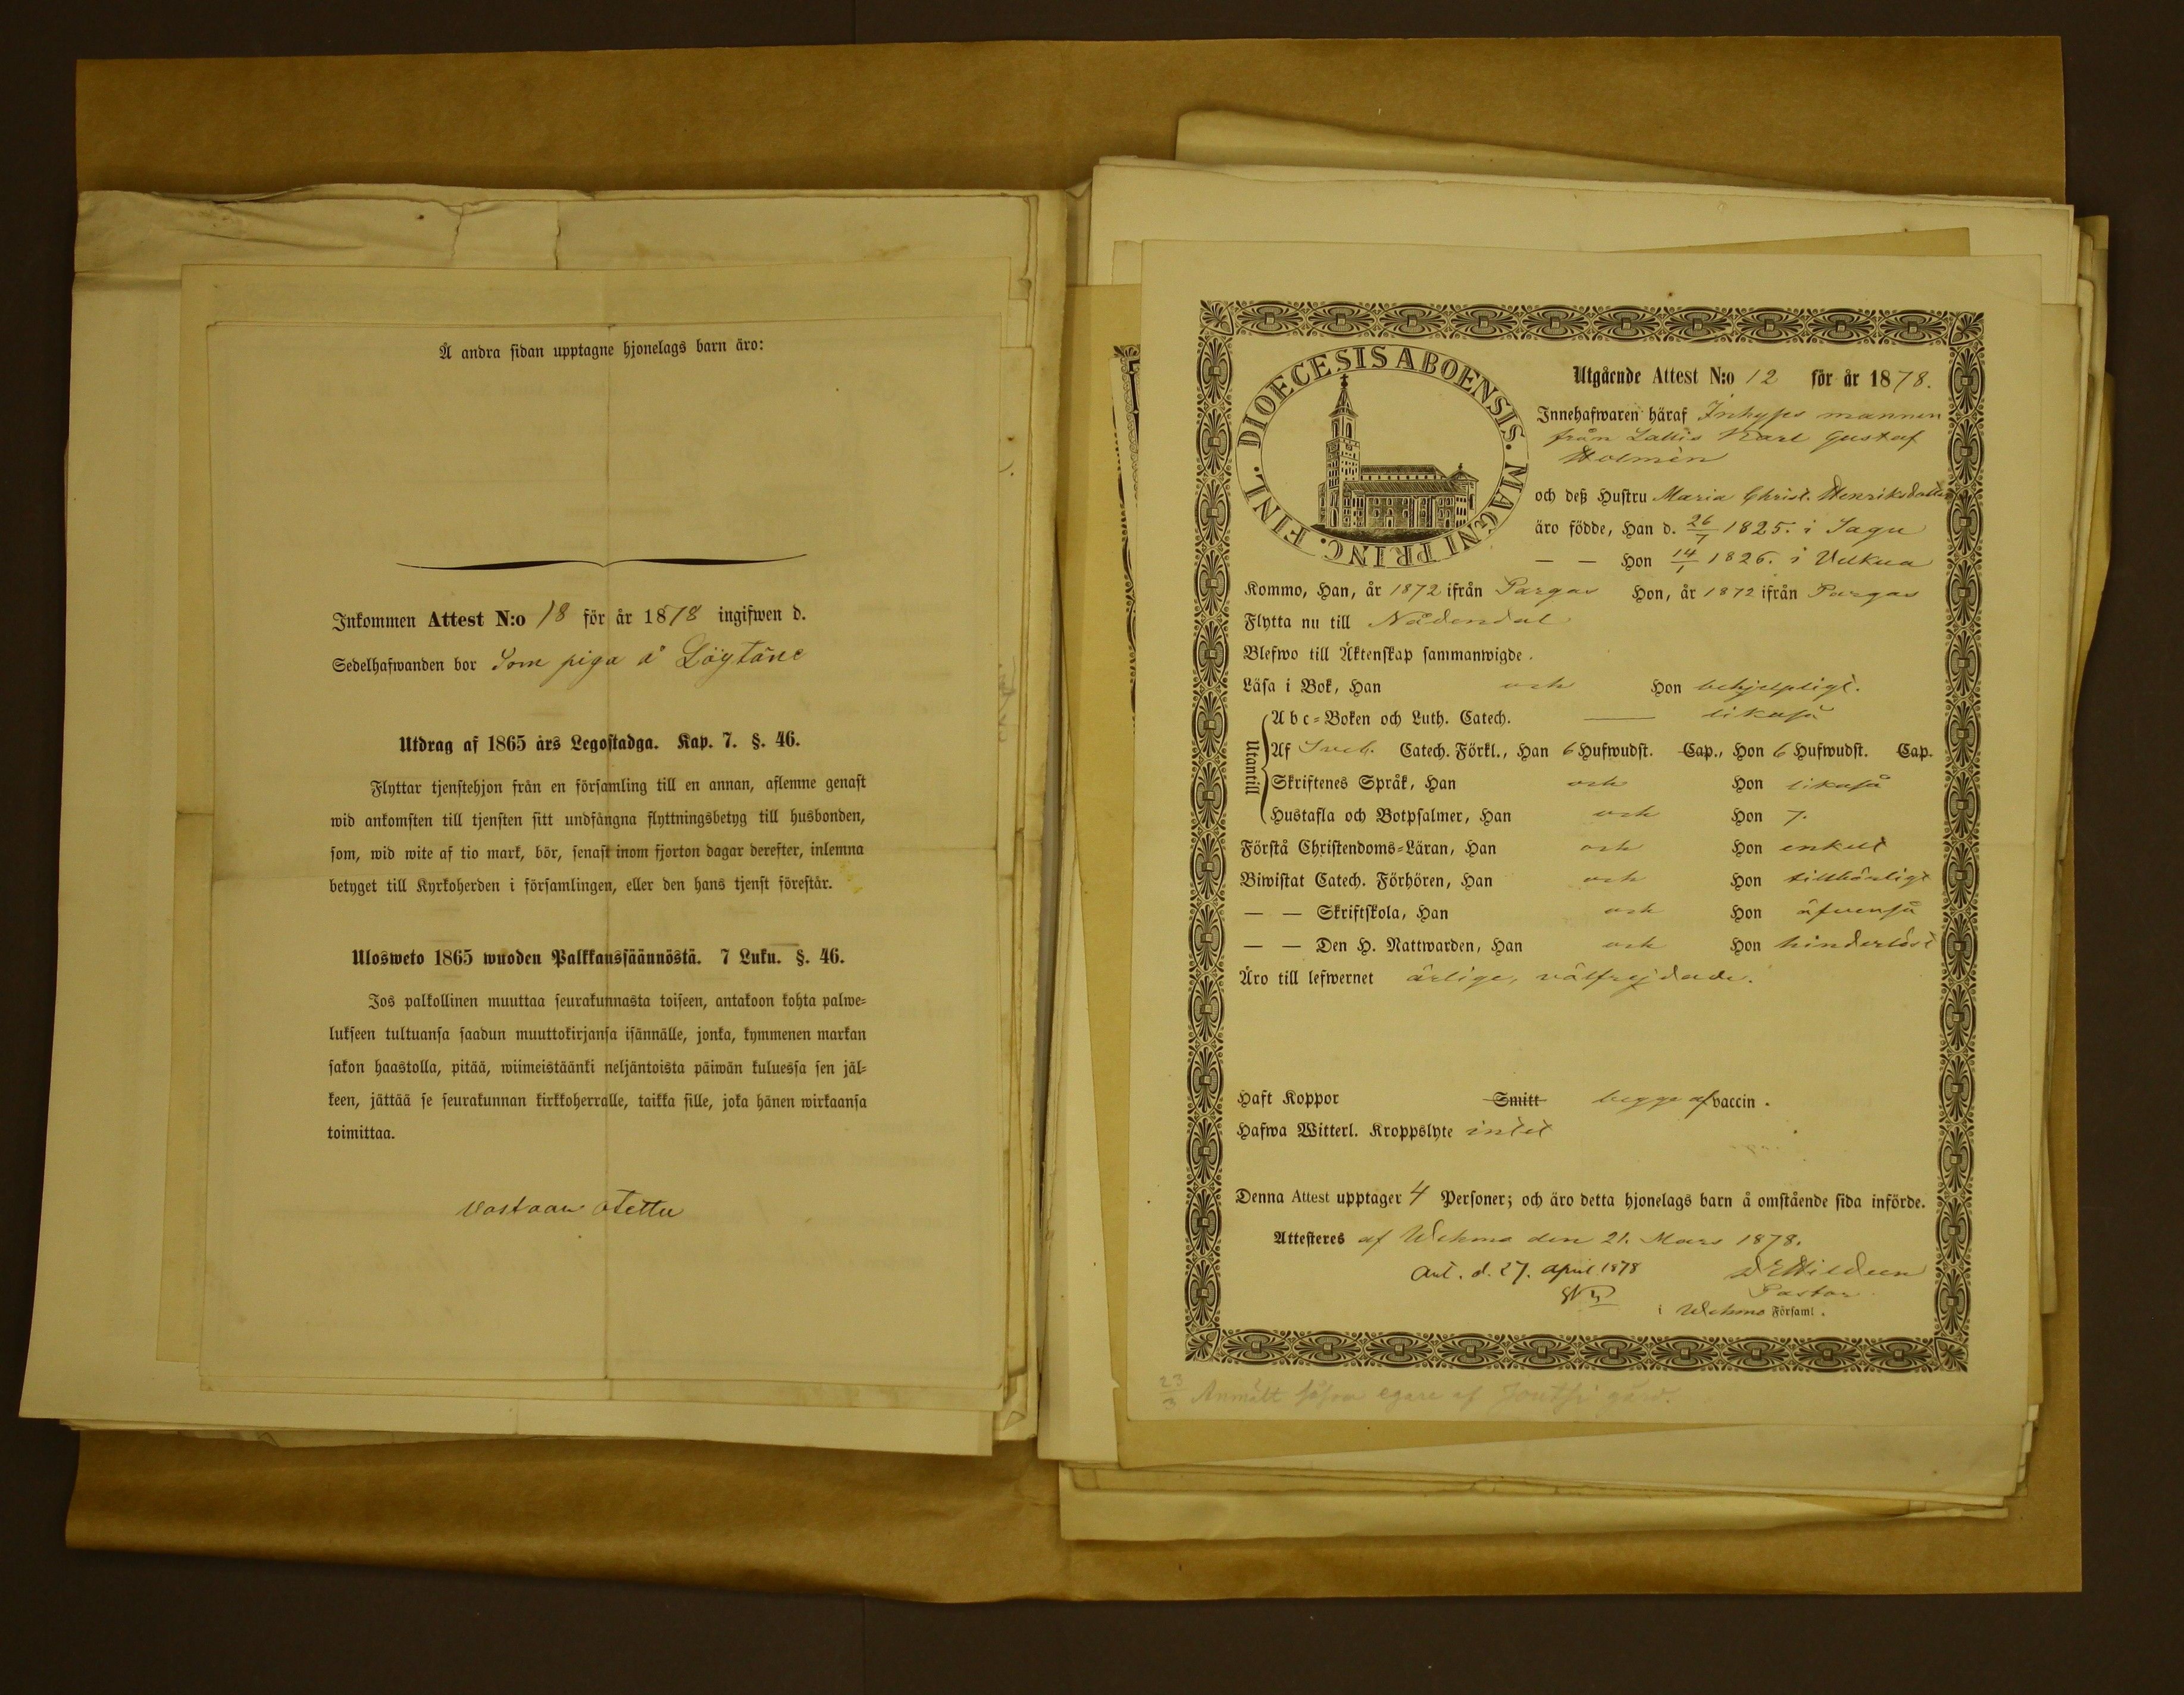 Å andra sidan upptagne hjonelags barn äro:
Inkommen Attest N:o 18 för år 1878 ingifwen d.
Sedelhafwanden bor Som piga å Löytäne
Utdrag af 1865 års Legostadga. Kap. 7. §. 46.
Flyttar tjenstehjon från en församling till en annan, aflemne genast
wid ankomsten till tjensten sitt undfångna flyttningsbetyg till husbonden,
som, wid wite af tio mark, bör, senast inom fjorton dagar derefter, inlemna
betyget till Kyrkoherden i församlingen, eller den hans tjenst förestår.
Ulosweto 1865 wuoden Palkkaussäännöstä. 7 Luku. §. 46.
Jos palkollinen muuttaa seurakunnasta toiseen, antakoon kohta palwe-
lukseen tultuansa saadun muuttokirjansa isännälle, jonka, kymmenen markan
sakon haastolla, pitää, wiimeistäänki neljäntoista päiwän kuluessa sen jäl-
keen, jättää se seurakunnan kirkkoherralle, taikka sille, joka hänen wirkaansa
toimittaa.
Vastaan otettu
DIOECESIS ABOENSIS. MAGNI PRINC. FINL.
Utgående Attest N:o 12 för år 1878.
Innehafwaren häraf Inhyses mannen
från Lallis Karl Gustaf
Holmén
och deß Hustru Maria Christ. Henriksdotter
äro födde, Han d. 26/7 1825. i Sagu
— — Hon 14/1 1826. i Velkua
Kommo, Han, år 1872 ifrån Pargas Hon, år 1872 ifrån Pargas
Flytta nu till Nådendal
Blefwo till Äktenskap sammanwigde.
Läsa i Bok, Han och Hon behjelpligt.
Utantill
Abc-Boken och Luth. Catech. — likaså
Af Sveb. Catech. Förkl., Han 6 Hufwudst. Cap., Hon 6 Hufwudst. Cap.
Skriftenes Språk, Han och Hon likaså
Hustafla och Botpsalmer, Han och Hon 7.
Förstå Christendoms-Läran, Han och Hon enkelt
Biwistat Catech. Förhören, Han och Hon tillbörligt
— — Skriftskola, Han och Hon äfvenså
— — Den H. Nattwarden, Han och Hon hinderlöst
Äro till lefwernet ärlige, välfrejdade.
Haft Koppor Smitt begge af vaccin.
Hafwa Witterl. Kroppslyte intet
Denna Attest upptager 4 Personer; och äro detta hjonelags barn å omstående sida införde.
Attesteres af Wehmo den 21. Mars 1878.
Ant. d. 27. April 1878
Pastor
i Wehmo Församl.
23/3 Anmält egare af gård.